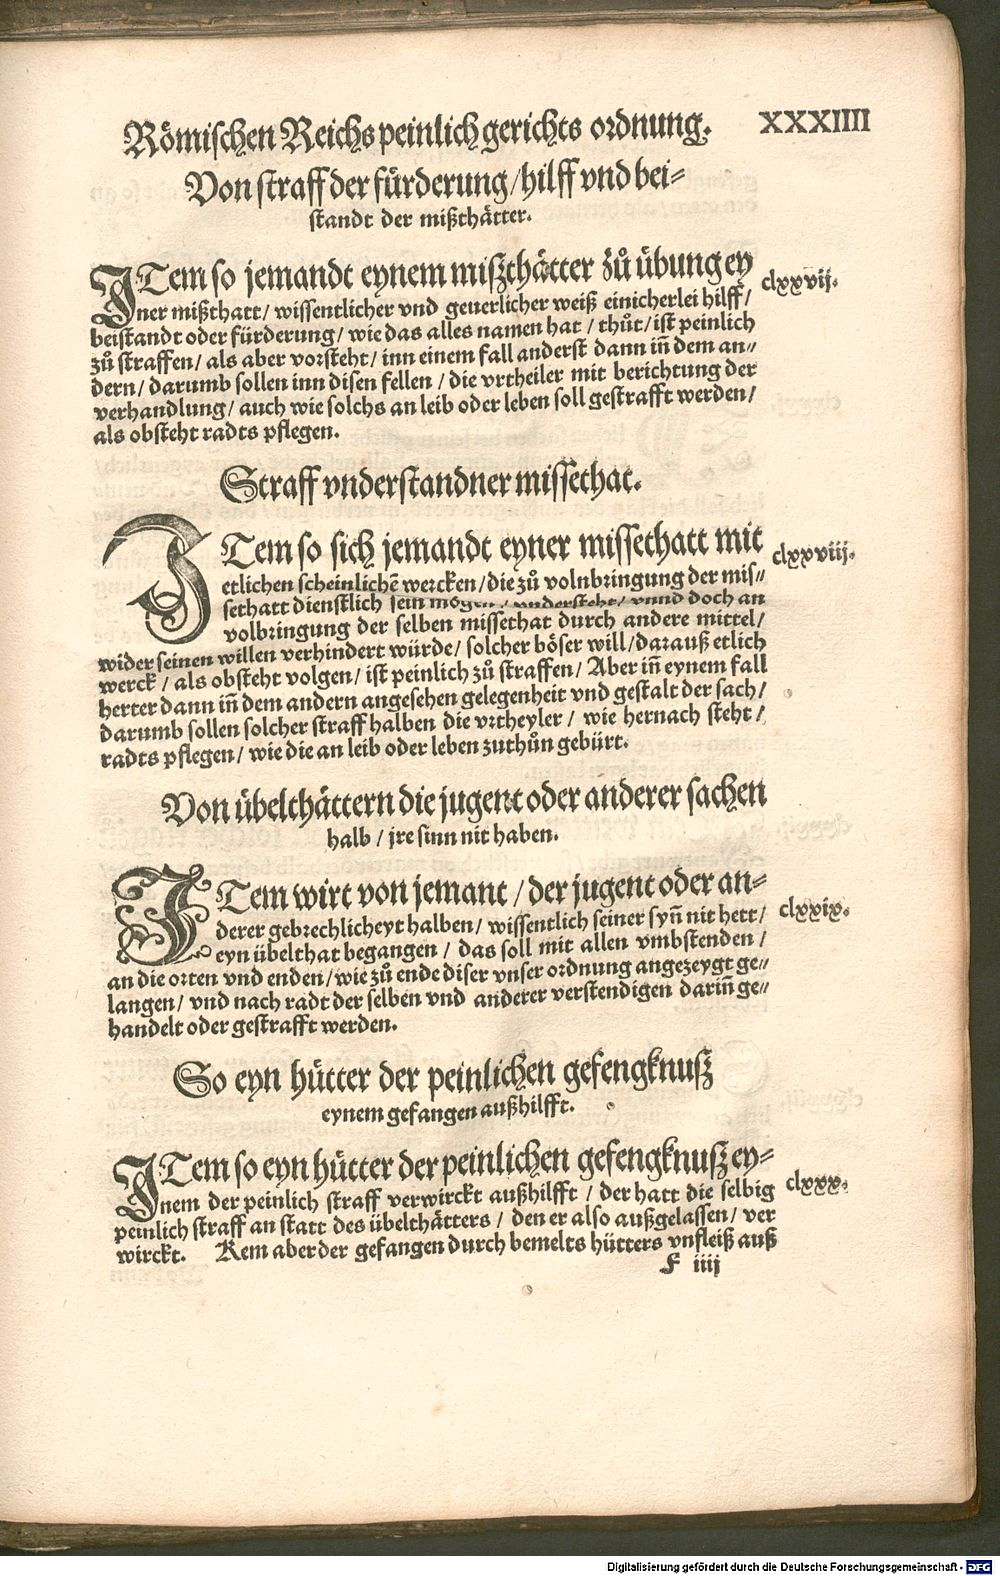 Römischen Reichs peinlich gerichts ordnung. XXXIIII
Von straff der fürderung / hilff vnd bei⸗
standt der mißthätter.
ITem so jemandt eynem miszthätter zů übung ey clxxvij.
ner mißthatt / wissentlicher vnd geuerlicher weiß einicherlei hilff /
beistandt oder fürderung / wie das alles namen hat / thůt / ist peinlich
zů straffen / als aber vorsteht / inn einem fall anderst dann iñ dem an⸗
dern / darumb sollen inn disen fellen / die vrtheiler mit berichtung der
verhandlung / auch wie solchs an leib oder leben soll gestrafft werden /
als obsteht radts pflegen.
Straff vnderstandner missethat.
ITem so sich jemandt eyner missethatt mit clxxviij.
etlichen scheinlichē wercken / die zů volnbringung der mis⸗
sethatt dienstlich sein mögen / vndersteht / vnnd doch an
volbringung der selben missethat durch andere mittel /
wider seinen willen verhindert würde / solcher böser will / darauß etlich
werck / als obsteht volgen / ist peinlich zů straffen / Aber iñ eynem fall
herter dann iñ dem andern angesehen gelegenheit vnd gestalt der sach /
darumb sollen solcher straff halben die vrtheyler / wie hernach steht /
radts pflegen / wie die an leib oder leben zuthůn gebürt.
Von übelthättern die jugent oder anderer sachen
halb / jre sinn nit haben.
ITem wirt von jemant / der jugent oder an⸗ clxxix.
derer gebrechlicheyt halben / wissentlich seiner syñ nit hett /
eyn übelthat begangen / das soll mit allen vmbstenden /
an die orten vnd enden / wie zů ende diser vnser ordnung angezeygt ge⸗
langen / vnd nach radt der selben vnd anderer verstendigen dariñ ge⸗
handelt oder gestrafft werden.
So eyn hütter der peinlichen gefengknusz
eynem gefangen außhilfft.
ITem so eyn hütter der peinlichen gefengknusz ey⸗ clxxx.
nem der peinlich straff verwirckt außhilfft / der hatt die selbig
peinlich straff an statt des übelthätters / den er also außgelassen / ver
wirckt. Kem aber der gefangen durch bemelts hütters vnfleiß auß
F iiij
Digitalisierung gefördert durch die Deutsche Forschungsgemeinschaft - DFG